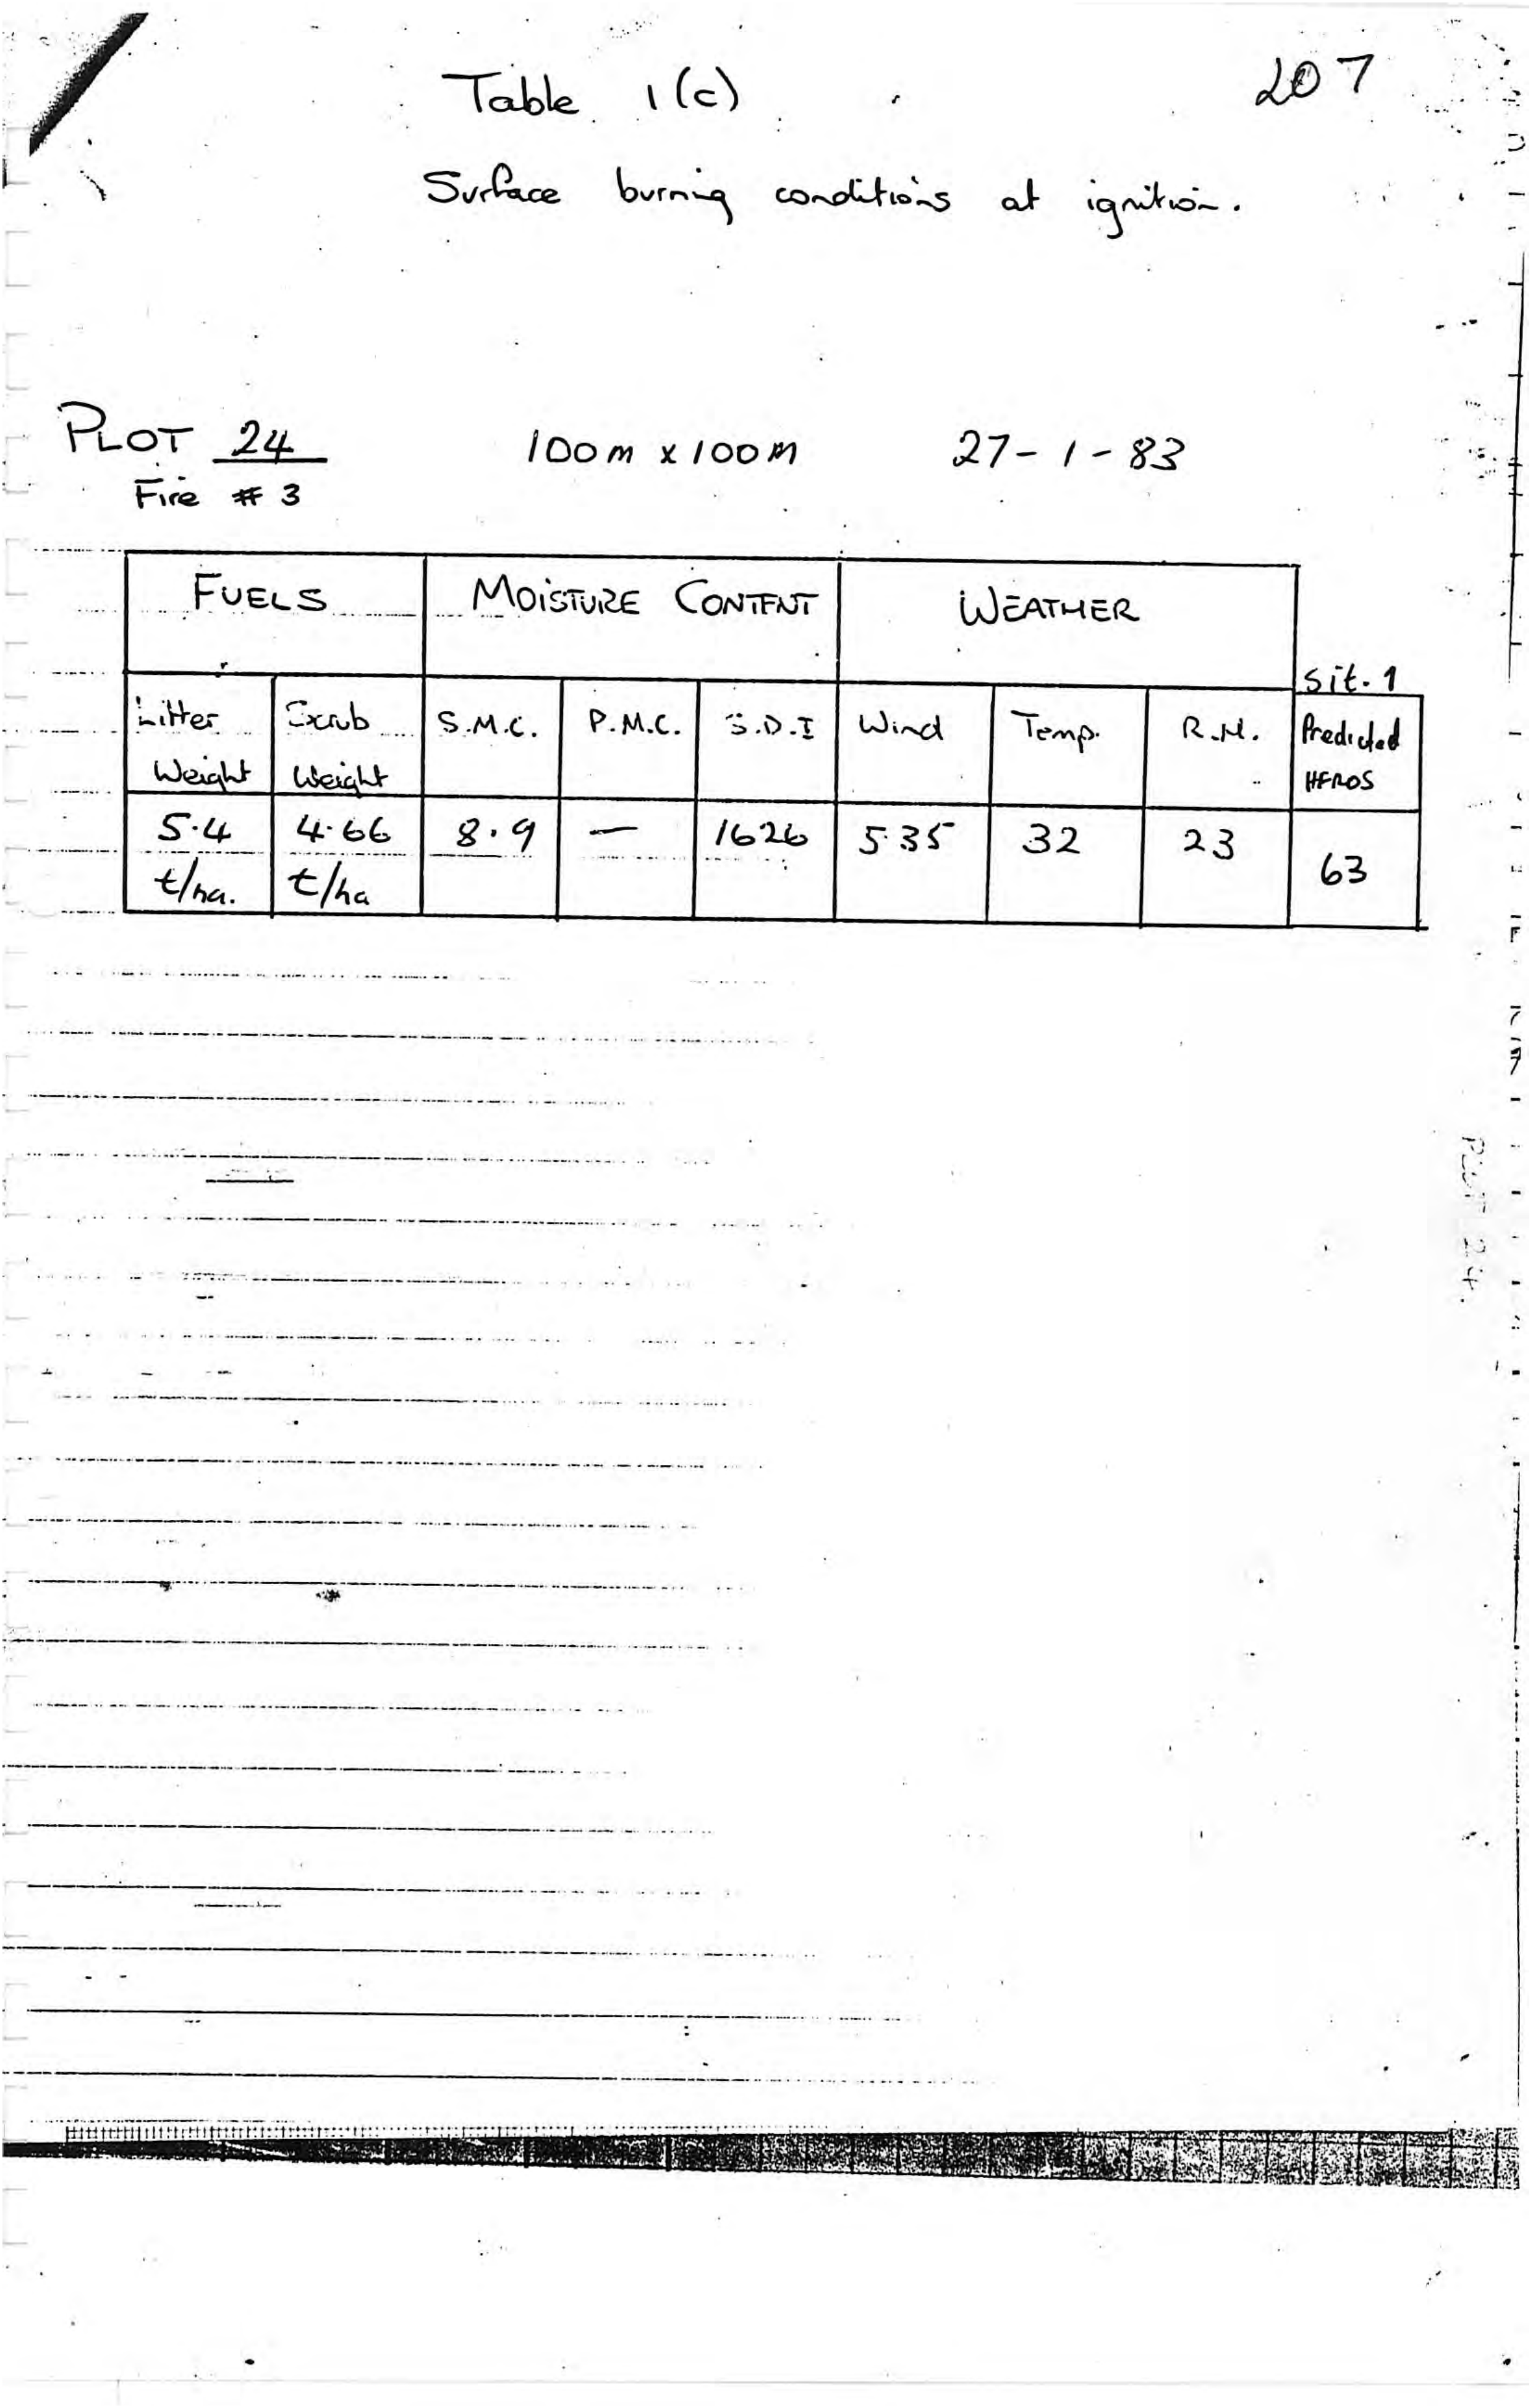 207
Table 1(c)
Surface burning conditions at ignition.
PLOT 24 100m x 100m 27-1-83
Fire # 3
FUELS MOISTURE CONTENT WEATHER
Sit. 1
Litter Weight Scrub Weight S.M.C. P.M.C. S.D.I Wind Temp. R.H. Predicted HFROS
5.4 t/ha. 4.66 t/ha 8.9 — 1626 5.35 32 23 63
PLOT 24.